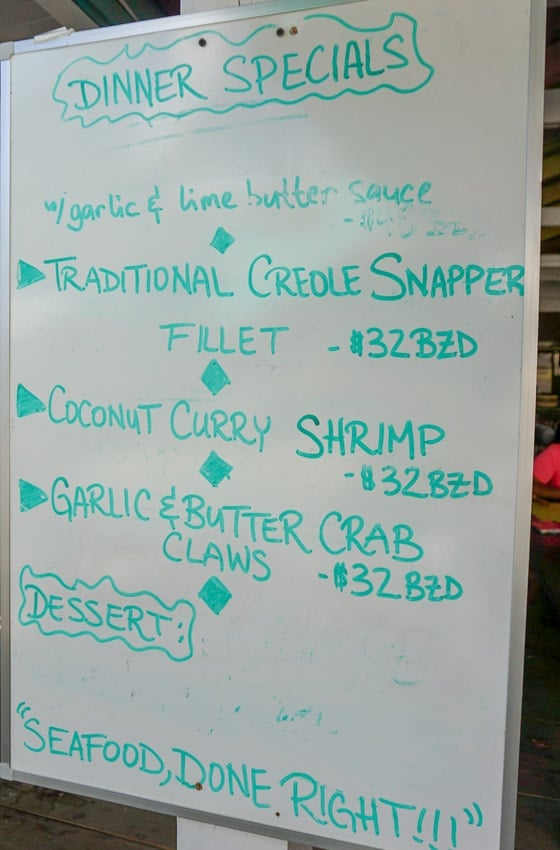 DINNER SPECIALS
w/ garlic & lime butter sauce
TRADITIONAL CREOLE SNAPPER
FILLET - $32BZD
COCONUT CURRY SHRIMP
- $32BZD
GARLIC & BUTTER CRAB
CLAWS - $32BZD
DESSERT:
"SEAFOOD, DONE RIGHT!!!"